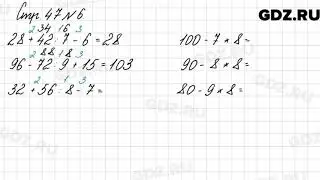 Стр 47 №6
GDZ.RU
2 34 1 6 3
28 + 42 : 7 - 6 = 28
2 88 1 8 3
96 - 72 : 9 + 15 = 103
2 1 3
32 + 56 : 8 - 7 =
100 - 7 * 8 =
90 - 8 * 8 =
80 - 9 * 8 =